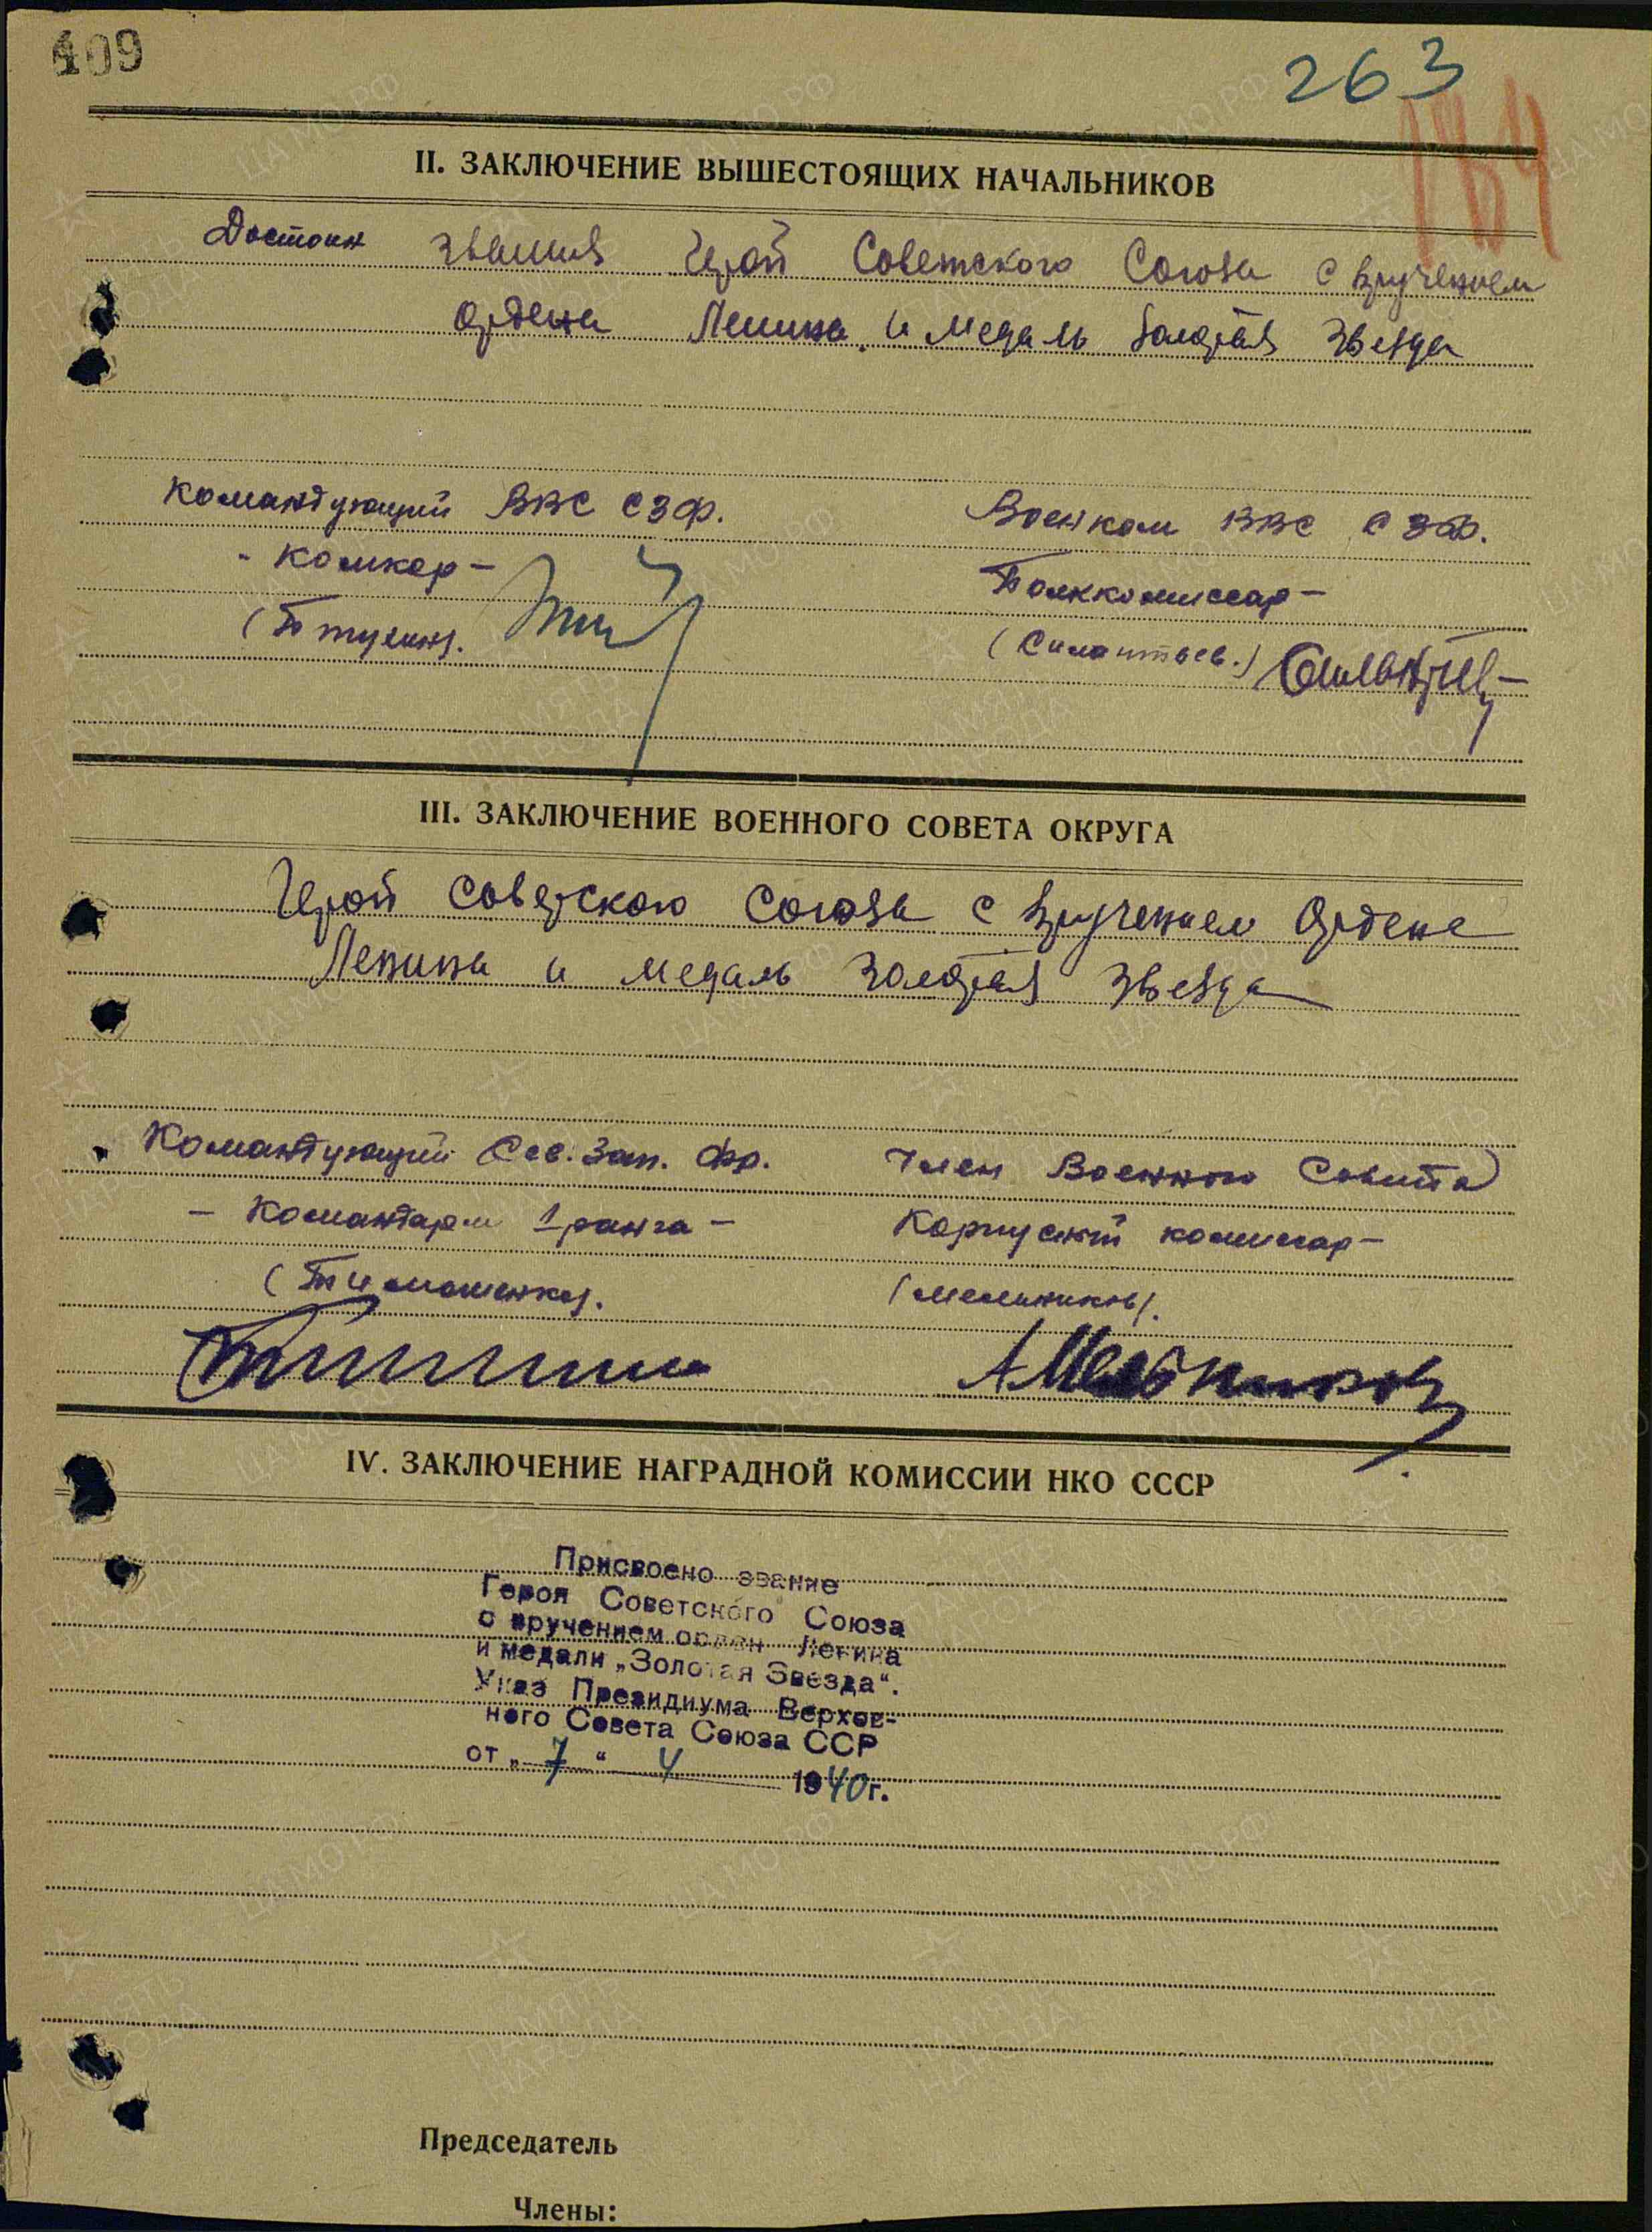 409
263
184
II. ЗАКЛЮЧЕНИЕ ВЫШЕСТОЯЩИХ НАЧАЛЬНИКОВ
Достоин звания Герой Советского Союза с вручением
Ордена Ленина и медаль Золотая Звезда
Командующий ВВС СЗФ.
Военком ВВС СЗФ.
- Комкор -
Полккомиссар -
(Птухин).
(Силантьев.) Силантьев
III. ЗАКЛЮЧЕНИЕ ВОЕННОГО СОВЕТА ОКРУГА
Герой Советского Союза с вручением Ордена
Ленина и медаль Золотая Звезда
Командующий Сев. Зап. Фр.
Член Военного Совета
- Командарм 1 ранга -
Корпусной комиссар -
(Тимошенко).
(Мельников).
А Мельников
IV. ЗАКЛЮЧЕНИЕ НАГРАДНОЙ КОМИССИИ НКО СССР
Присвоено звание
Героя Советского Союза
с вручением орден Ленина
и медали „Золотая Звезда“.
Указ Президиума Верхов-
ного Совета Союза ССР
от „ 7 “ 4 1940 г.
Председатель
Члены:
ЦАМО.РФ
ПАМЯТЬ НАРОДА